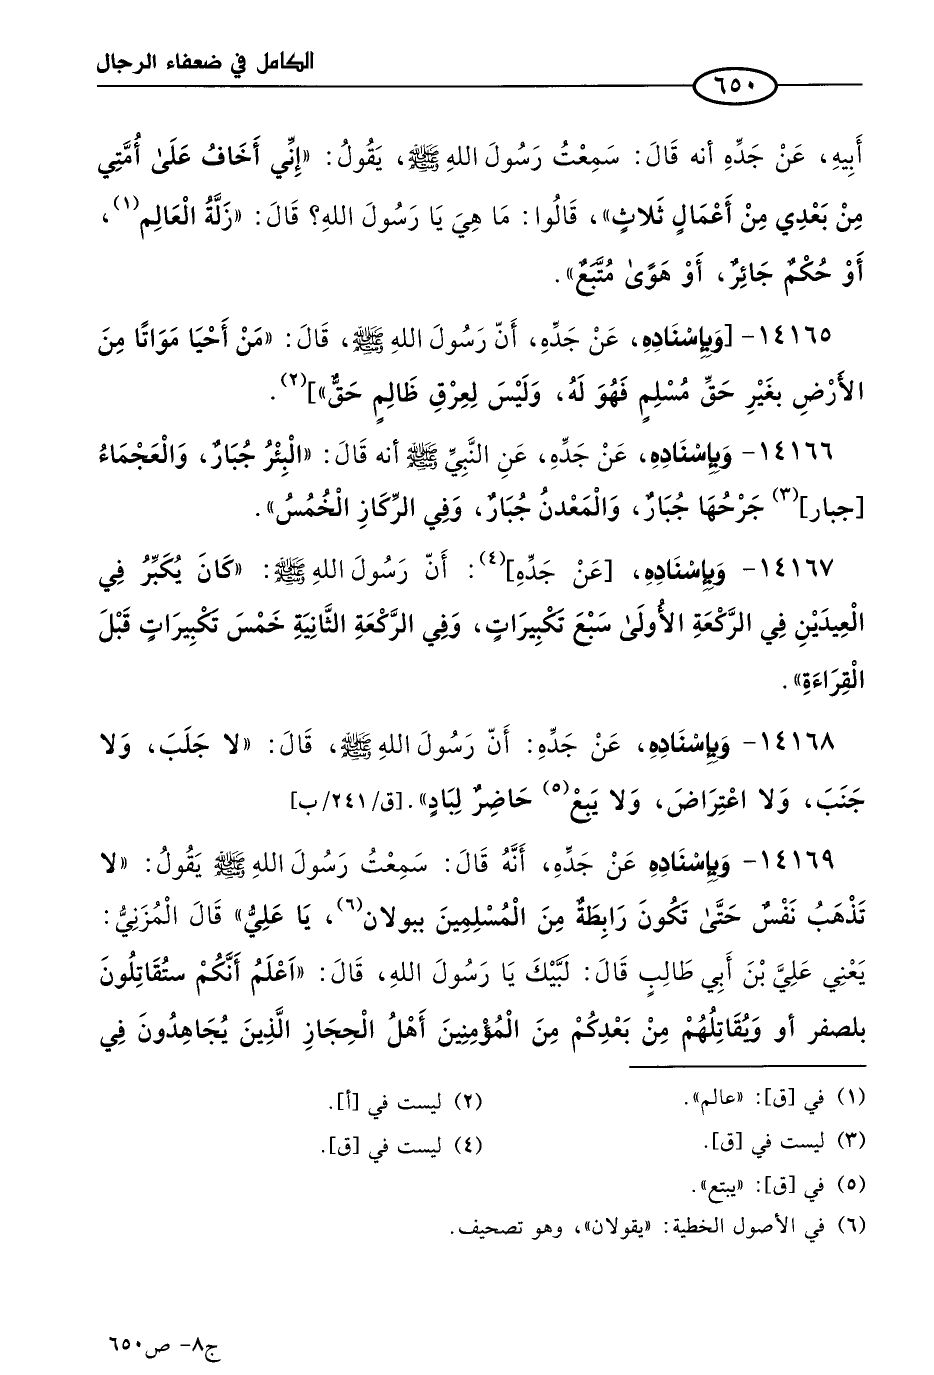 الكامل في ضعفاء الرجال
٦٥٠
أَبِيهِ، عَنْ جَدِّهِ أنه قَالَ: سَمِعْتُ رَسُولَ اللهِ ﷺ، يَقُولُ: «إِنِّي أَخَافُ عَلَىٰ أُمَّتِي
مِنْ بَعْدِي مِنْ أَعْمَالٍ ثَلاثٍ»، قَالُوا: مَا هِيَ يَا رَسُولَ اللهِ؟ قَالَ: «زَلَّةُ الْعَالِمِ(١)،
أَوْ حُكْمٌ جَائِرٌ، أَوْ هَوًىٰ مُتَّبَعٌ».
١٤١٦٥- [وَبِإِسْنَادِهِ، عَنْ جَدِّهِ، أَنّ رَسُولَ اللهِ ﷺ، قَالَ: «مَنْ أَحْيَا مَوَاتًا مِنَ
الأَرْضِ بِغَيْرِ حَقِّ مُسْلِمٍ فَهُوَ لَهُ، وَلَيْسَ لِعِرْقٍ ظَالِمٍ حَقٌّ»](٢).
١٤١٦٦- وَبِإِسْنَادِهِ، عَنْ جَدِّهِ، عَنِ النَّبِيِّ ﷺ أنه قَالَ: «الْبِئْرُ جُبَارٌ، وَالْعَجْمَاءُ
[جبار](٣) جَرْحُهَا جُبَارٌ، وَالْمَعْدنُ جُبَارٌ، وَفِي الرِّكَازِ الْخُمُسُ».
١٤١٦٧- وَبِإِسْنَادِهِ، [عَنْ جَدِّهِ](٤): أَنّ رَسُولَ اللهِ ﷺ: «كَانَ يُكَبِّرُ فِي
الْعِيدَيْنِ فِي الرَّكْعَةِ الأُولَىٰ سَبْعَ تَكْبِيرَاتٍ، وَفِي الرَّكْعَةِ الثَّانِيَةِ خَمْسَ تَكْبِيرَاتٍ قَبْلَ
الْقِرَاءَةِ».
١٤١٦٨- وَبِإِسْنَادِهِ، عَنْ جَدِّهِ: أَنّ رَسُولَ اللهِ ﷺ، قَالَ: «لا جَلَبَ، وَلا
جَنَبَ، وَلا اعْتِرَاضَ، وَلا يَبِعْ(٥) حَاضِرٌ لِبَادٍ».[ق/٢٤١/ب]
١٤١٦٩- وَبِإِسْنَادِهِ عَنْ جَدِّهِ، أَنَّهُ قَالَ: سَمِعْتُ رَسُولَ اللهِ ﷺ يَقُولُ: «لا
تَذْهَبُ نَفْسٌ حَتَّىٰ تَكُونَ رَابِطَةٌ مِنَ الْمُسْلِمِينَ ببولان(٦)، يَا عَلِيُّ» قَالَ الْمُزَنِيُّ:
يَعْنِي عَلِيَّ بْنَ أَبِي طَالِبٍ قَالَ: لَبَّيْكَ يَا رَسُولَ اللهِ، قَالَ: «اَعْلَمُ أَنَّكُمْ ستُقَاتِلُونَ
بلصفر أو وَيُقَاتِلُهُمْ مِنْ بَعْدِكُمْ مِنَ الْمُؤْمِنِينَ أَهْلُ الْحِجَازِ الَّذِينَ يُجَاهِدُونَ فِي
(١) في [ق]: «عالم».
(٢) ليست في [أ].
(٣) ليست في [ق].
(٤) ليست في [ق].
(٥) في [ق]: «يبتع».
(٦) في الأصول الخطية: «يقولان»، وهو تصحيف.
ج٨- ص٦٥٠